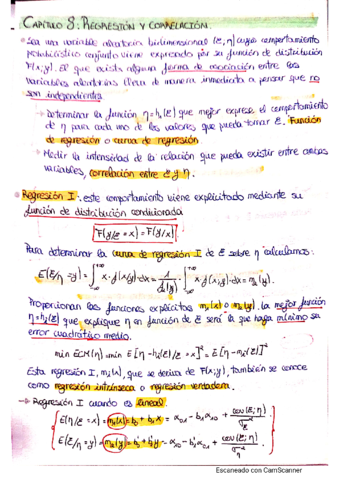 CAPÍTULO 8: REGRESIÓN Y CORRELACIÓN.
Sea una variable aleatoria bidimensional (ξ, η) cuyo comportamiento
probabilístico conjunto viene expresado por su función de distribución
F(x,y). El que exista alguna forma de asociación entre las
variables aleatorias lleva de manera inmediata a pensar que no
son independientes
→ Determinar la función η = h(ξ) que mejor exprese el comportamiento
de η para cada uno de los valores que pueda tomar ξ. Función
de regresión o curva de regresión.
→ Medir la intensidad de la relación que pueda existir entre ambas
variables, correlación entre ξ y η.
Regresión I: este comportamiento viene explicitado mediante su
función de distribución condicionada
F(y/ξ = x) = F(y/x)
Para determinar la curva de regresión I de ξ sobre η calculamos:
E(ξ/η = y) = ∫ x · f(x/y) dx = ∫ x · f(x,y) · dx = m₂(y)
Proporcionan las funciones explícitas m₁(x) o m₂(y). La mejor función
η = h(ξ) que explique η en función de ξ será la que haga mínimo su
error cuadrático medio.
min ECM(η) = min E[η - h(ξ)/ξ = x]² = E[η - m₁(x)]²
Esta regresión I, m₁(x), que se deriva de F(x,y), también se conoce
como regresión intrínseca o regresión verdadera.
→ Regresión I cuando es lineal
E(η/ξ = x) = m₁(x) = b₀ + b₁x = α₀₁ - b₁α₁₀ + cov(ξ; η)
E(ξ/η = y) = m₂(y) = b₀' + b₁'y = α₁₀ - b₁'α₀₁ + cov(ξ; η)
Escaneado con CamScanner